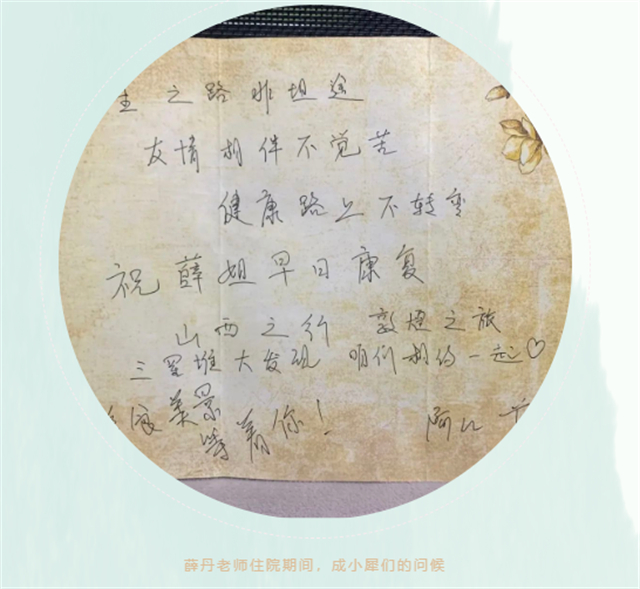 生之路非坦途
友情相伴不觉苦
健康路上不转弯
祝薛姐早日康复
山西之行 敦煌之旅
三星堆大发现 咱们相约一起♡
美景
等着你！
阿
薛丹老师住院期间，成小犀们的问候